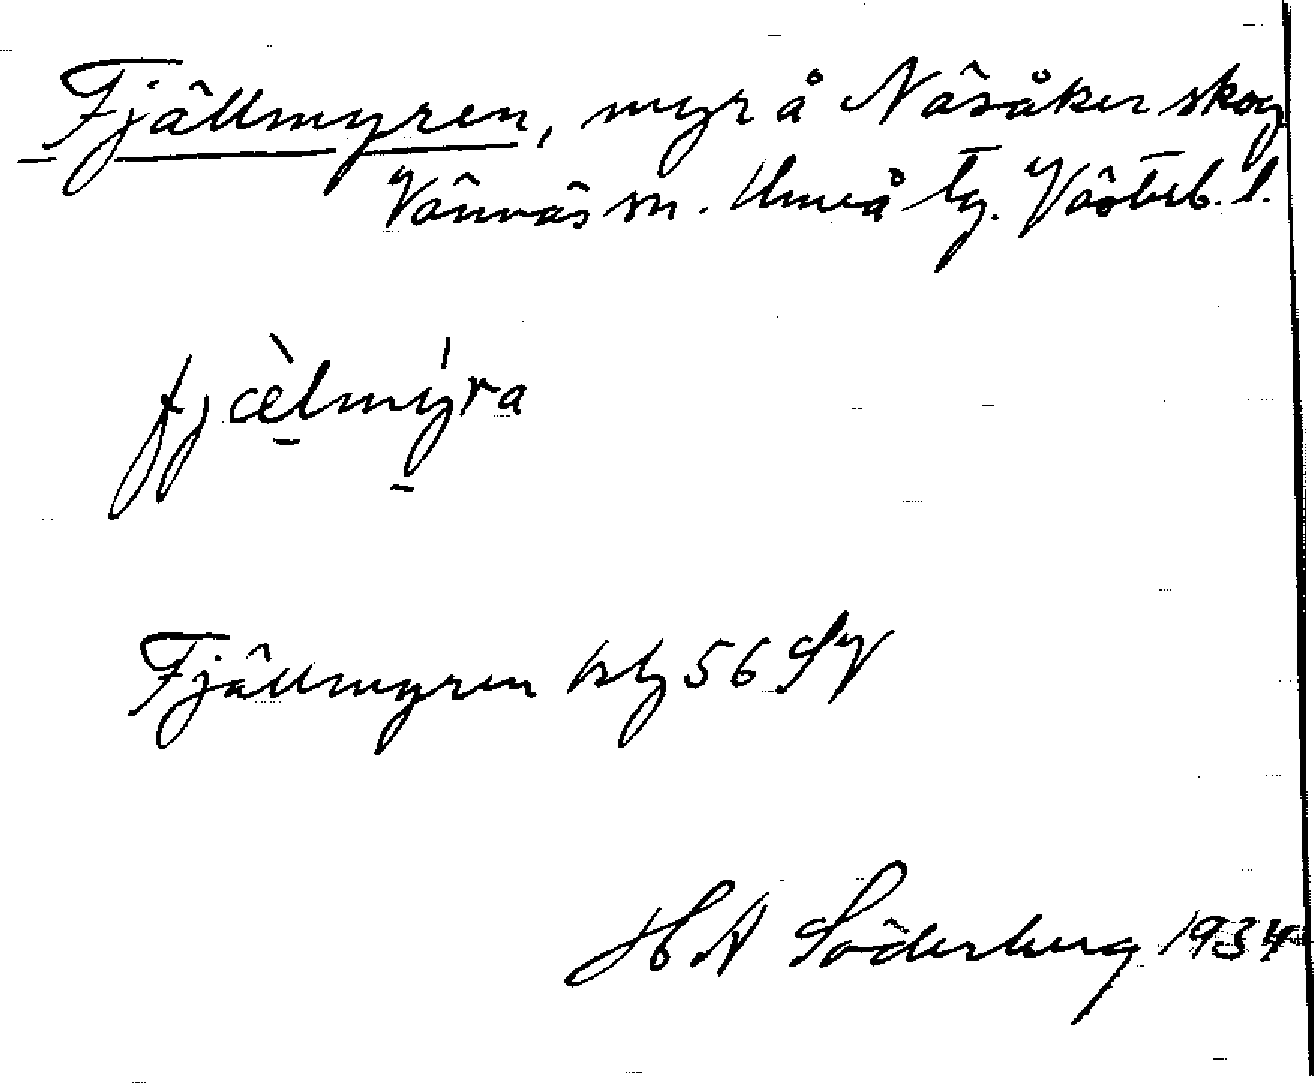 Fjällmyren, myr å Näsåker skog
Vännäs sn. Umeå tg. Västerb. l.
fjæ̀lmýra
Fjällmyren bl 56 SV
H A Söderberg 1934